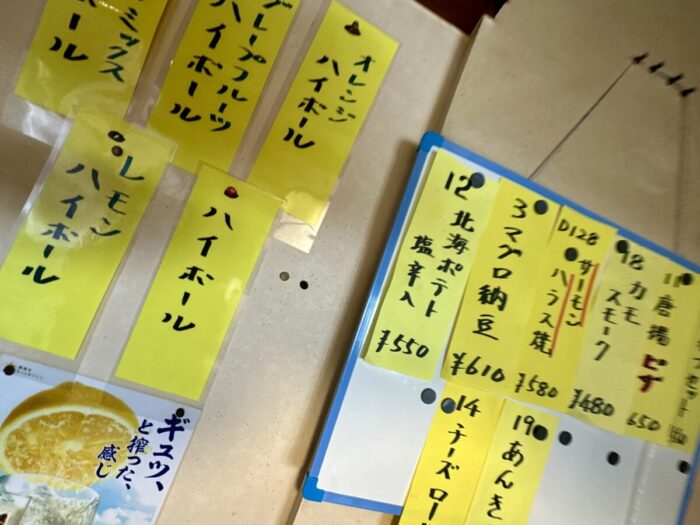 オレンジ
ハイボール
グレープフルーツ
ハイボール
ミックス
ハイボール
レモン
ハイボール
ハイボール
ギュッ、
と搾った、
感じ
12 北海ポテト
塩辛入
¥550
3 マグロ納豆
¥610
D128
サーモン
ハラス焼
¥580
18 カモ
スモーク
¥480
11 唐揚ピザ
650
14 チーズロー
19 あんき